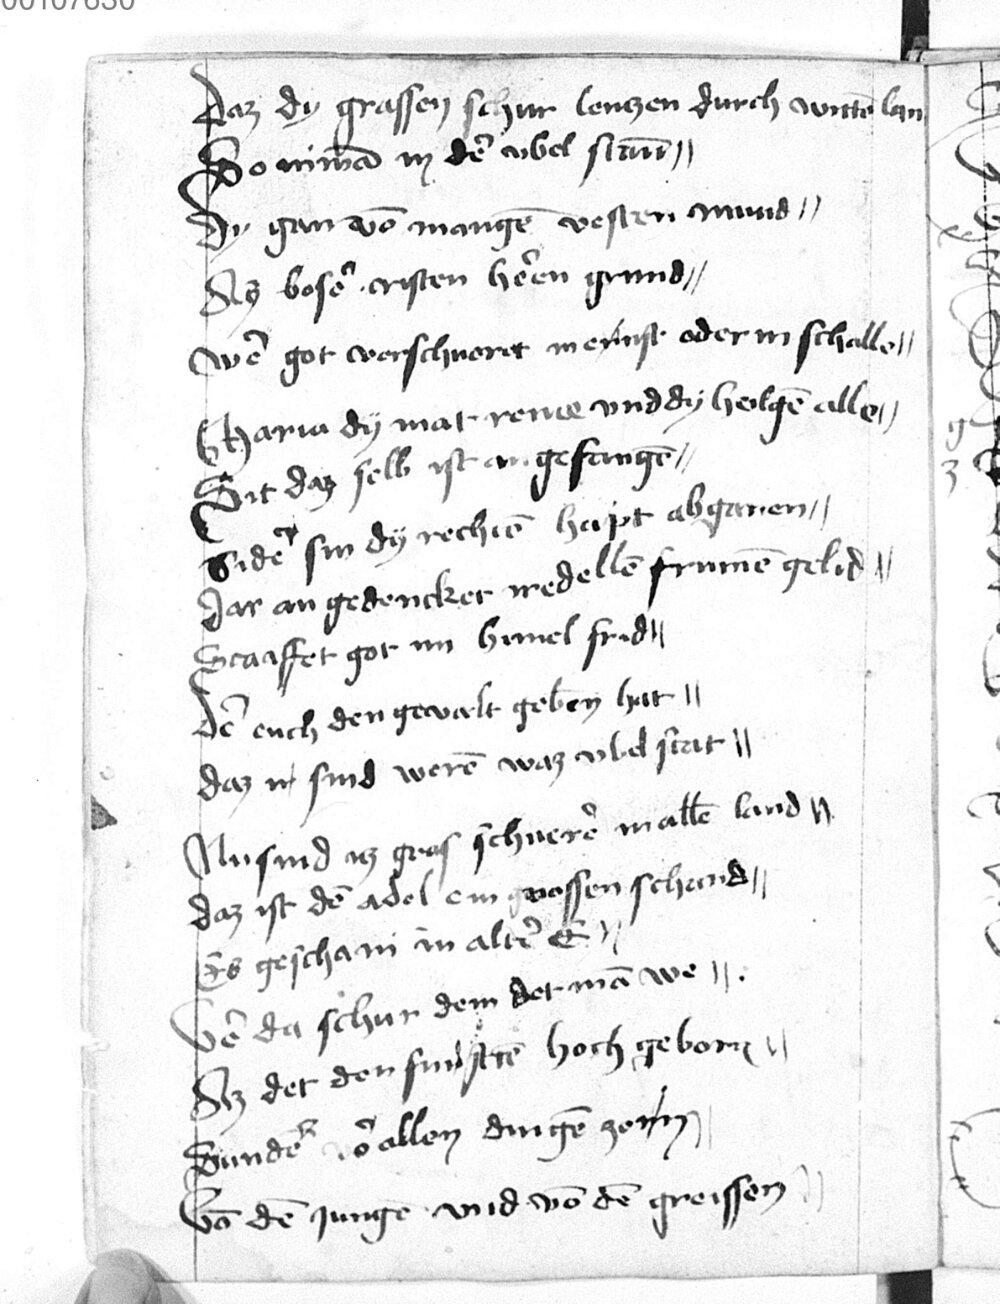 00107630
Daz dy grassen schur lenzen durch witte lan
So nimād in dē vbel stāu //
Dy gan vō mangē vesten mund //
Az bosē cristen hēen grund //
Wē got verschweret in ernst oder in schalle //
Maria dÿ mat reine vnd dÿ heilgē alle //
Sit daz selb ist an gefangē //
Sidē sin dÿ rechtē haipt abganen //
Dar an gedencket ir edellē frumē gelid //
Scaaffet got im himel frid //
Dē euch den gewalt geben hat //
daz ir sind werē waz vbel stat //
Nu sind iz gros schwerē in allē land //
daz ist dē adel ein grossen schand //
Es gescha ni in altē E //
Wē da schur dem det mā we //
Az det den fursttē hoch geborn //
Sundē vō allen dingē zorn //
Vō dē jungē vnd vō dē greissen //